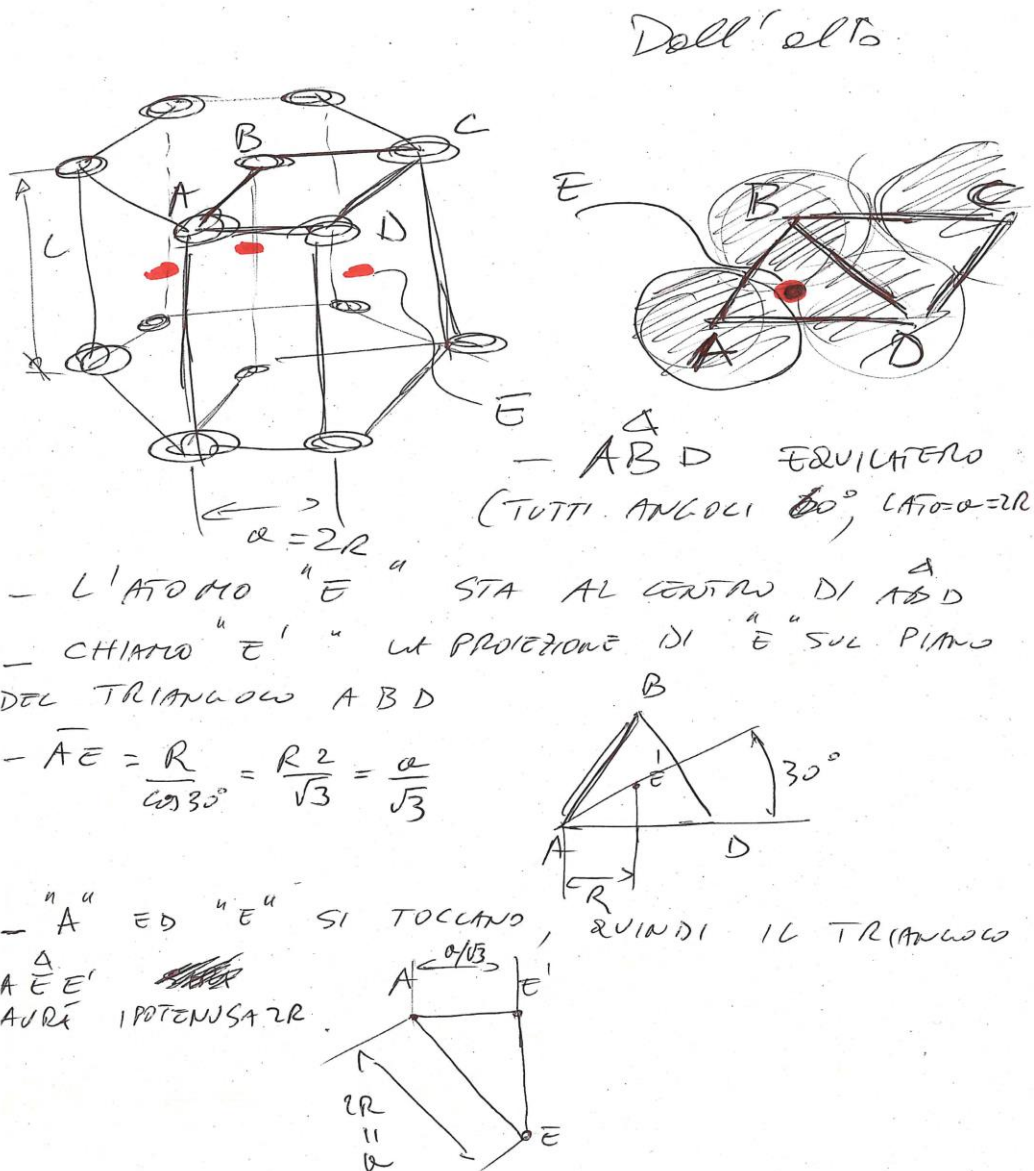 Dall'alto
B
C
A
D
L
E
a = 2R
E
B
C
A
D
– ABD EQUILATERO
(TUTTI ANGOLI 60°, LATO=a=2R
– L'ATOMO "E" STA AL CENTRO DI ABD
– CHIAMO "E'" LA PROIEZIONE DI "E" SUL PIANO
DEL TRIANGOLO ABD
– AE = R/cos30° = R2/√3 = a/√3
B
E'
30°
A
D
R
– "A" ED "E" SI TOCCANO, QUINDI IL TRIANGOLO
AEE'
AVRÀ IPOTENUSA 2R.
A
a/√3
E'
2R
=
a
E